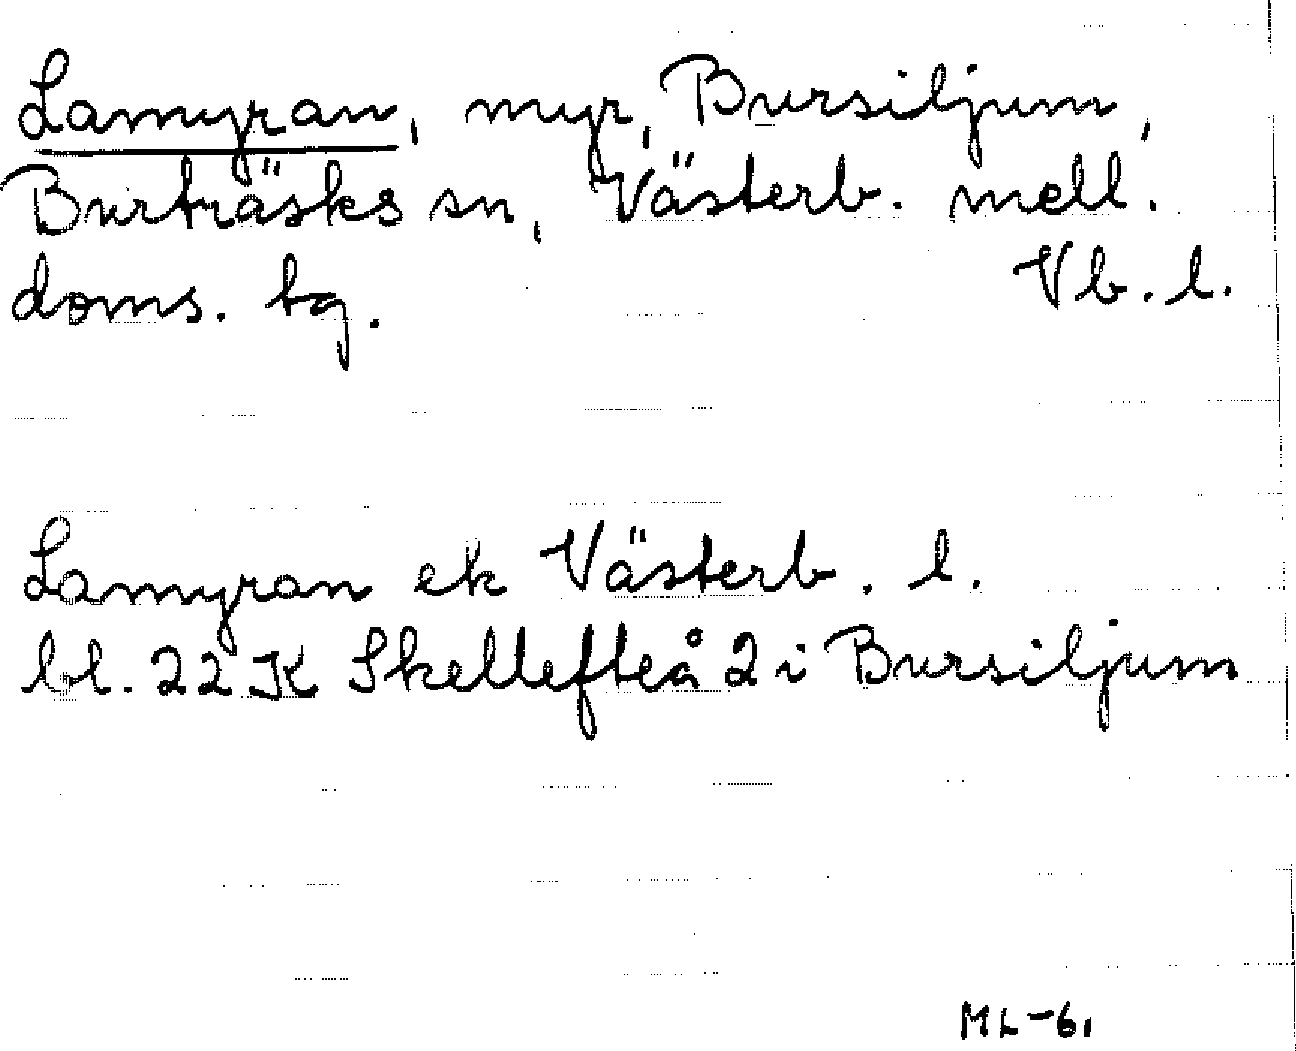 Lamyran, myr, Bursiljum,
Burträsks sn, Västerb. mell.
doms. tg. Vb. l.
Lamyran ek Västerb. l.
bl. 22 K Skellefteå 2 i Bursiljum
ML-61